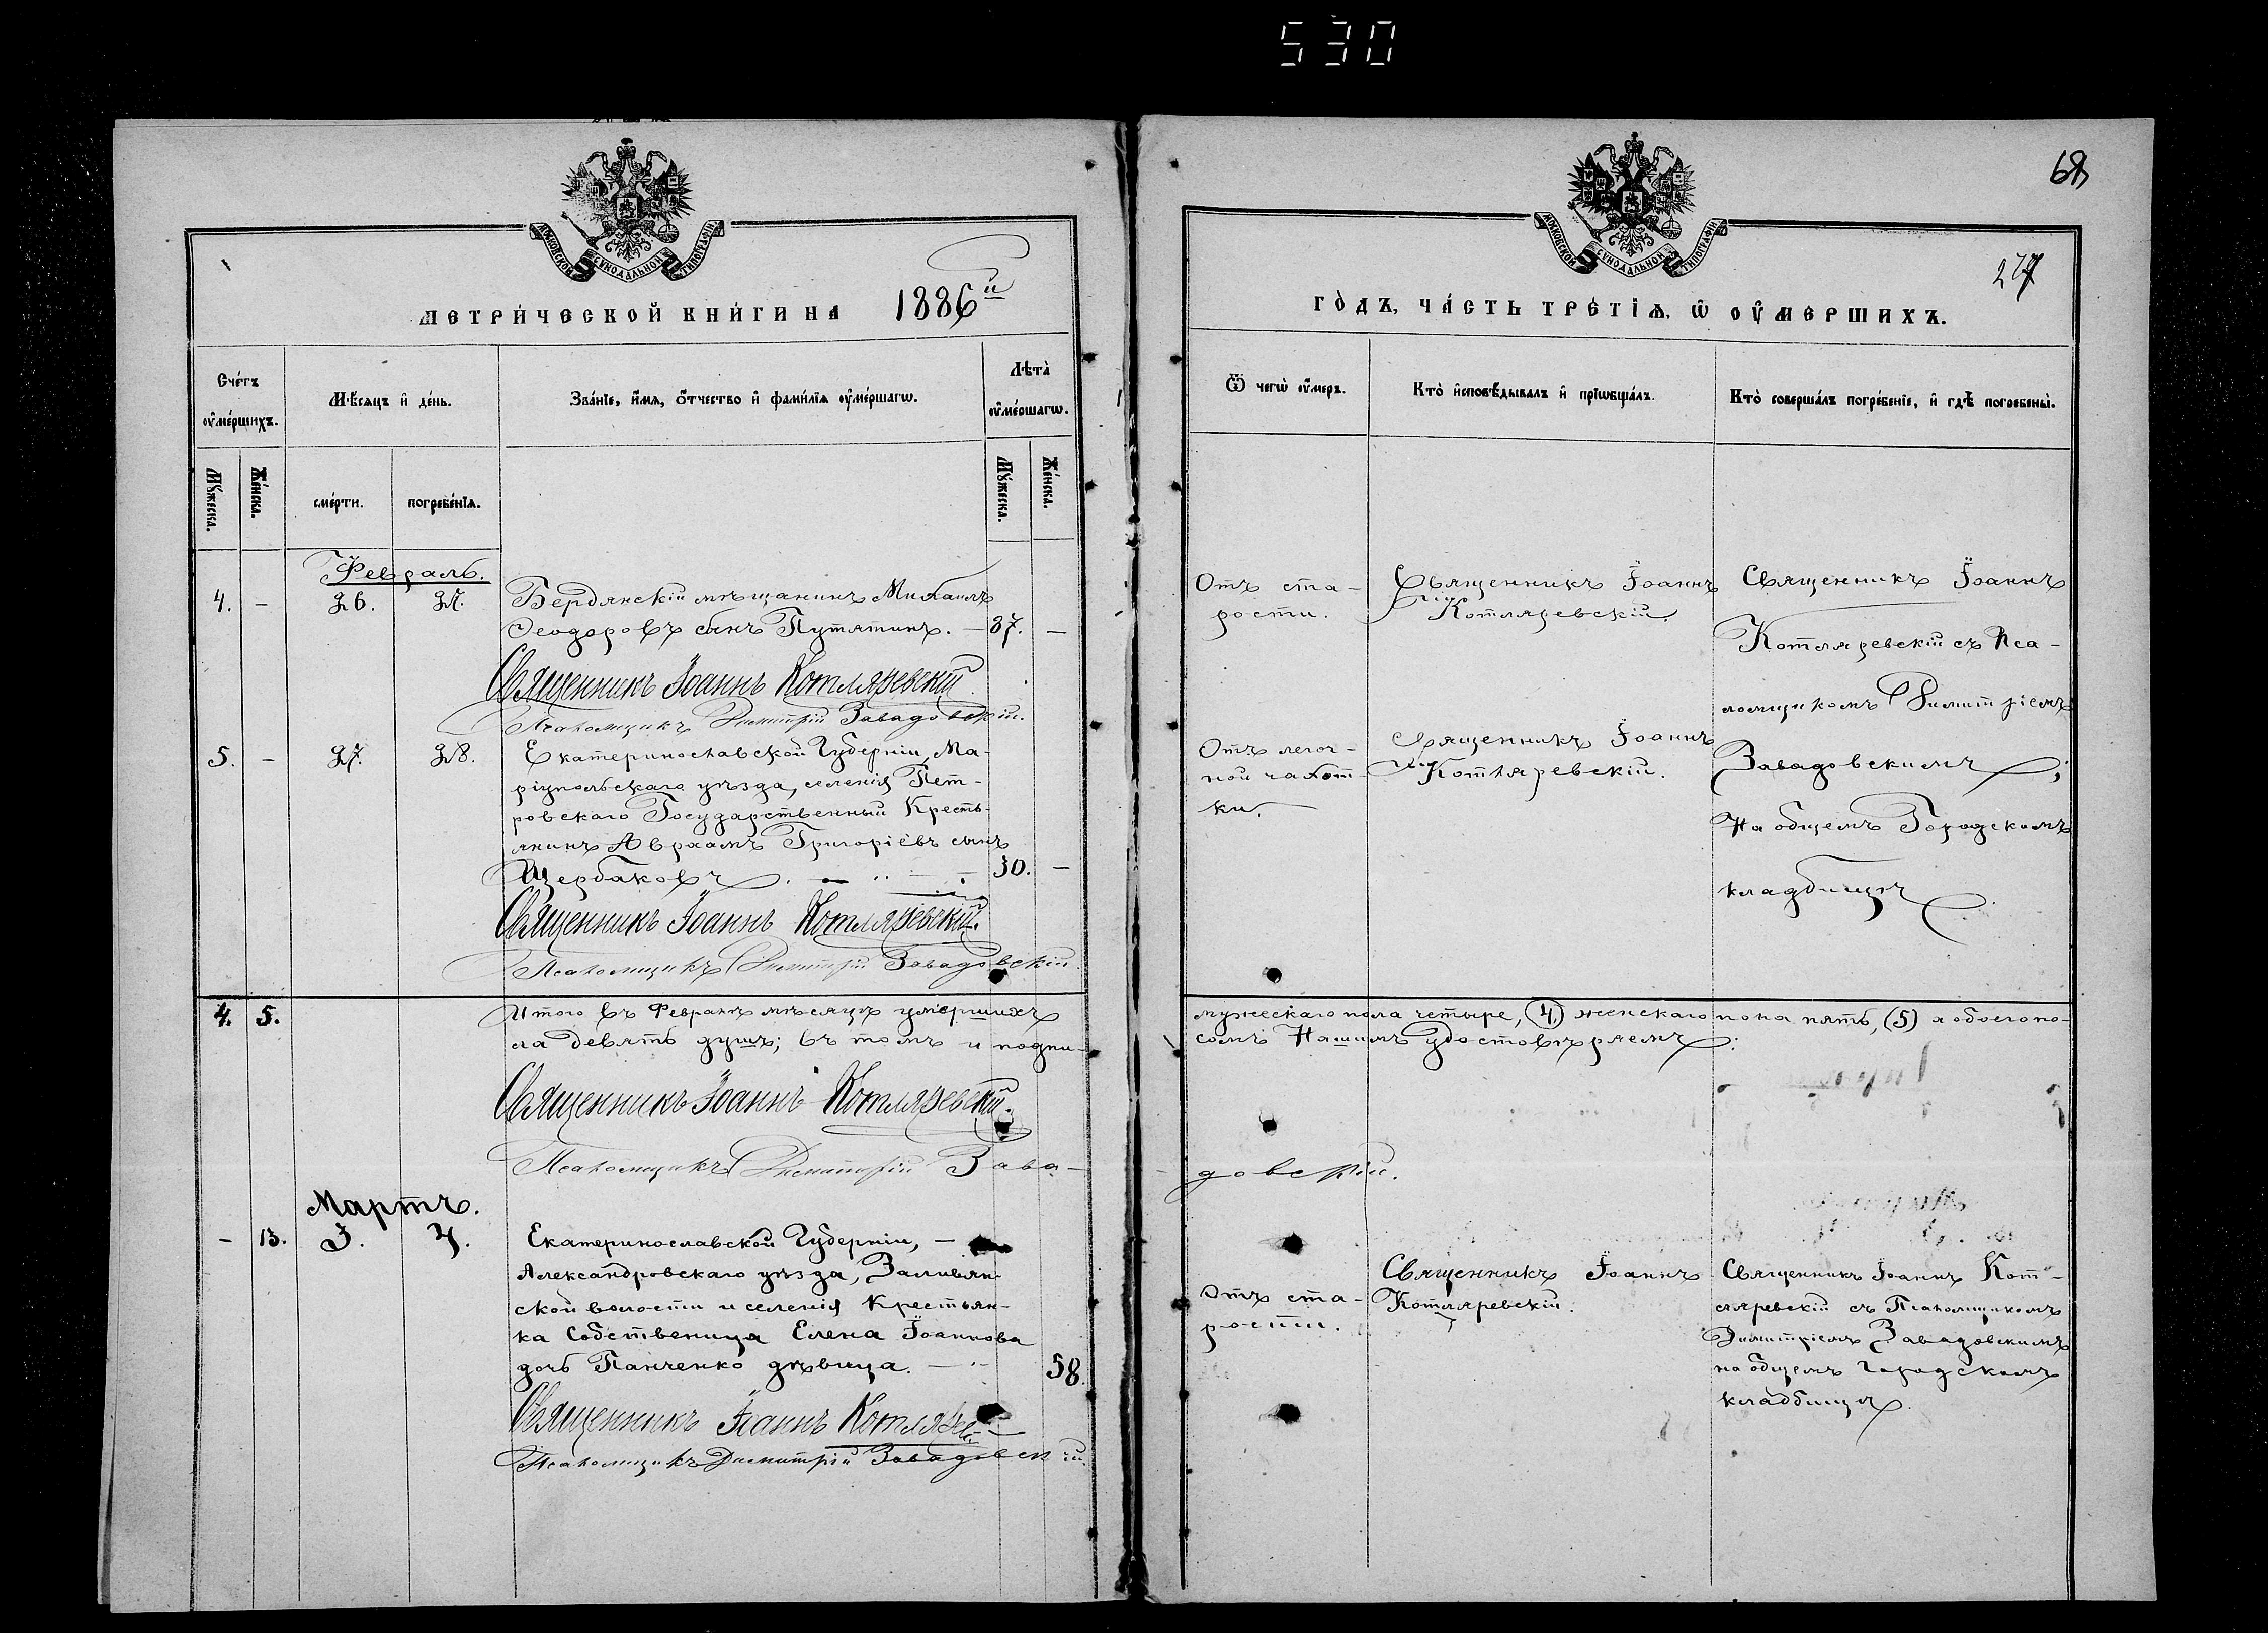 530
68
277
МОСКОВСКОЙ СУНОДАЛЬНОЙ ТИПОГРАФІИ
МЕТРИ́ЧЕСКОЙ КНИ́ГИ НА 1886й
Сче́тъ ᲂу҆ме́ршихъ.
Мѣ́сяцъ и҆ де́нь.
Зва́нїе, и҆́мя, ѻ҆́тчество и҆ фами́лїя ᲂу҆ме́ршагѡ.
Лѣта̀ ᲂу҆ме́ршагѡ.
Мꙋ́жеска.
Же́нска.
сме́рти.
погребе́нїѧ.
Мꙋ́жеска.
Же́нска.
Февраль.
4. – 26. 27. Бердянскій мѣщанинъ Михаилъ
Ѳеодоровъ сынъ Путятинъ. – 87. –
Священникъ Іоаннъ Котляревскій.
Псаломщикъ Димитрій Завадовскій.
5. – 27. 28. Екатеринославской Губерніи, Ма-
ріупольскаго уѣзда, селенія Пет-
ровскаго Государственный Кресть-
янинъ Авраамъ Григоріевъ сынъ
Щербаковъ. 30. –
Священникъ Іоаннъ Котляревскій.
Псаломщикъ Димитрій Завадовскій.
4. 5. Итого въ Февралѣ мѣсяцѣ умершихъ
ла девять душъ; въ томъ и подпи-
Священникъ Іоаннъ Котляревскій.
Псаломщикъ Димитрій Зава-
Мартъ.
– 13. 3. 4. Екатеринославской Губерніи, –
Александровскаго уѣзда, Заливян-
ской волости и селенія Крестьян-
ка Собственица Елена Іоаннова
дочь Панченко дѣвица. – 58.
Священникъ Іоаннъ Котлярев
Псаломщикъ Димитрій Завадовскій.
МОСКОВСКОЙ СУНОДАЛЬНОЙ ТИПОГРАФІИ
ГО́ДЪ, ЧА́СТЬ ТРЕ́ТЇѦ, Ѡ҆ ОУ҆МЕ́РШИХЪ.
Ѿ чегѡ̀ ᲂу҆́меръ.
Кто̀ и҆сповѣ́дывалъ и҆ прїѡбща́лъ.
Кто̀ соверша́лъ погребе́нїе, и҆ гдѣ̀ погребены̀.
Отъ ста-
рости.
Священникъ Іоаннъ
Котляревскій.
Священникъ Іоаннъ
Котляревскій съ Пса-
ломщикомъ Димитріемъ
Завадовскимъ;
На общемъ Городскомъ
кладбищѣ.
Отъ легоч-
ной чахот-
ки.
Священникъ Іоаннъ
Котляревскій.
мужескаго пола четыре, (4) женскаго пола пять, (5) а обоего по-
сомъ Нашимъ удостовѣряемъ:
довскій.
Отъ ста-
рости.
Священникъ Іоаннъ
Котляревскій.
Священникъ Іоаннъ Кот-
ляревскій съ Псаломщикомъ
Димитріемъ Завадовскимъ
на общемъ городскомъ
кладбищѣ.